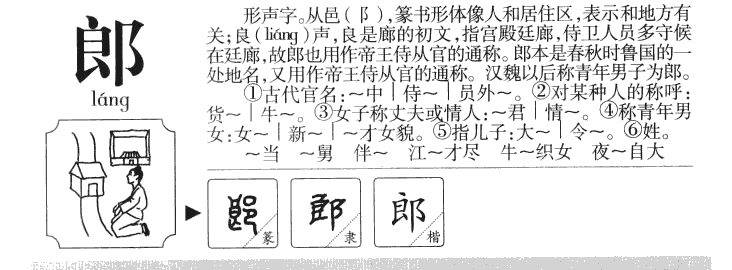 郎
láng
形声字。从邑(阝),篆书形体像人和居住区,表示和地方有
关;良(liáng)声,良是廊的初文,指宫殿廷廊,侍卫人员多守候
在廷廊,故郎也用作帝王侍从官的通称。郎本是春秋时鲁国的一
处地名,又用作帝王侍从官的通称。汉魏以后称青年男子为郎。
①古代官名:~中|侍~|员外~。②对某种人的称呼:
货~|牛~。③女子称丈夫或情人:~君|情~。④称青年男
女:女~|新~|~才女貌。⑤指儿子:大~|令~。⑥姓。
~当 ~舅 伴~ 江~才尽 牛~织女 夜~自大
郎 篆
郎 隶
郎 楷